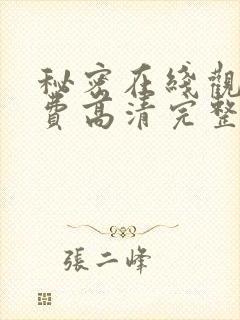 秘密在綫觀
費高清完整
張二峰